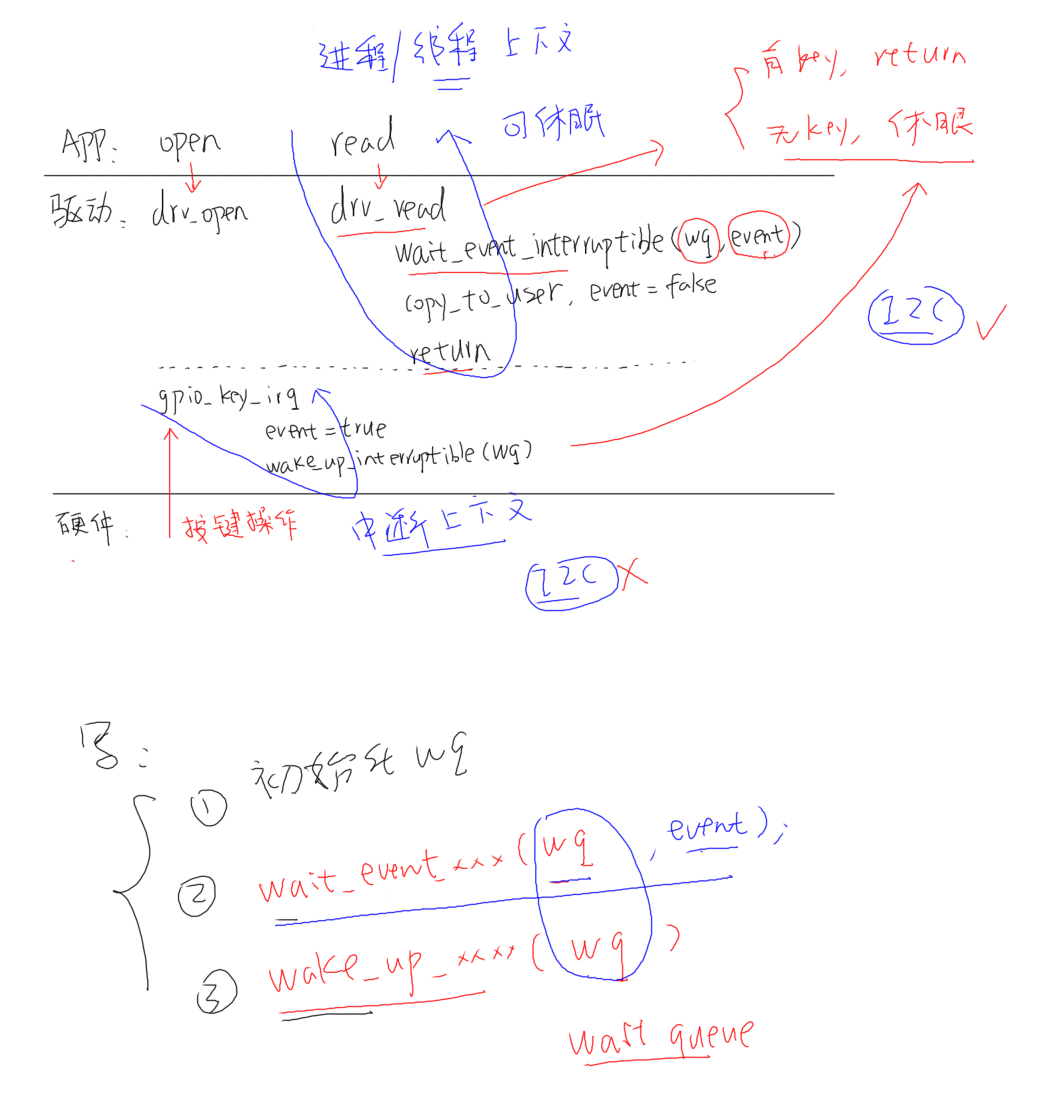 进程/线程 上下文
可休眠
有key, return
无key, 休眠
APP: open read
驱动: drv_open drv_read
wait_event_interruptible(wq, event)
copy_to_user, event = false
return
I2C ✓
gpio_key_irq
event = true
wake_up_interruptible(wq)
硬件: 按键操作 中断上下文
I2C ×
写:
① 初始化 wq
② wait_event_xxx(wq, event);
③ wake_up_xxxx(wq)
wait queue